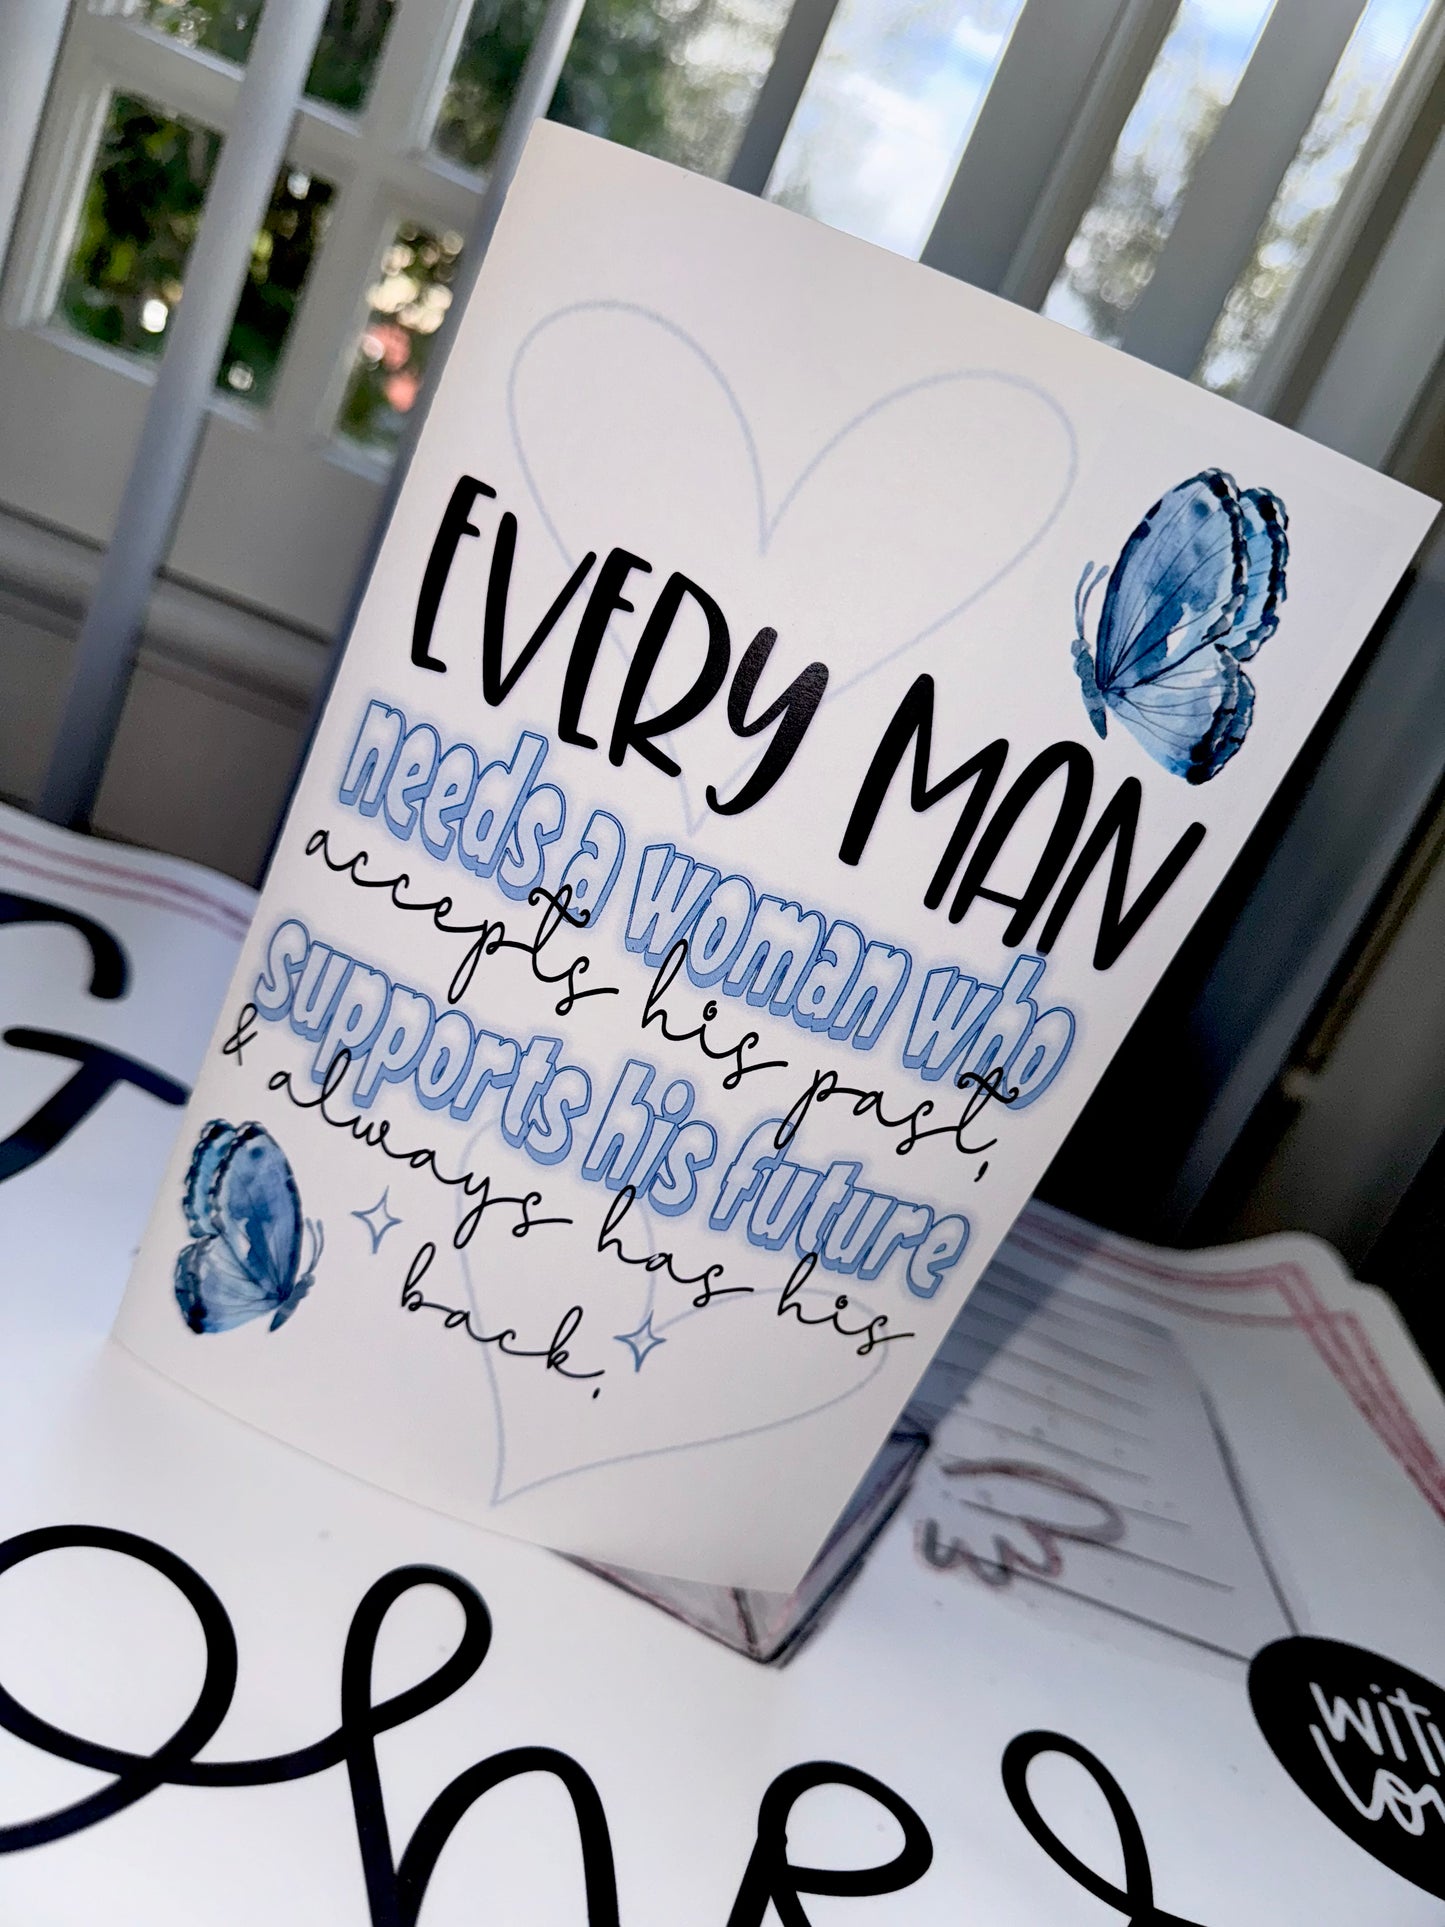 EVERY MAN
needs a woman who
accepts his past,
supports his future
& always has his
back.
with